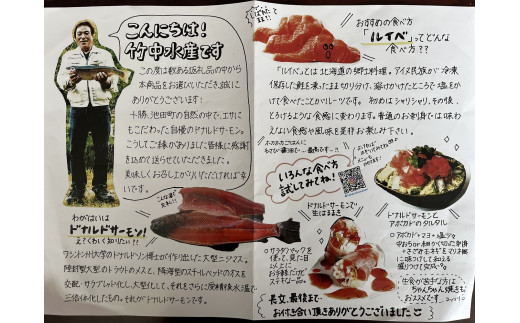 こんにちは!
竹中水産です
この度は数ある返礼品の中から
本商品をお選びいただき、誠に
ありがとうございます!
十勝、池田町の自然の中で、エサに
もこだわった自慢のドナルドサーモン。
こうしてご縁のありました皆様に感謝
を込めて送らせていただきました。
美味しくお召し上がりいただければ幸
いです。
わがはいは
ドナルドサーモン!
えっくわしく知りたい!!
ワシントン州大学のドナルドソン博士が作り出した大型ニジマス。
陸封型大型のトラウトのメスと、降海型のスチールヘッドのオスを
交配・サラブレッド化し大型化して、それをさらに受精後水温で
三倍体化したもの。それがドナルドサーモンです。
おすすめの食べ方
「ルイベ」ってどんな
食べ方??
「ルイベ」とは北海道の郷土料理。アイヌ民族が冷凍
保存した鮭を凍ったまま切り分け、溶けかけたところで塩をか
けて食べたことがルーツです。初めはシャリシャリ、その後、
とろけるような食感に変わります。普通のお刺身では味わ
えない食感や風味を是非お楽しみ下さい。
ホカホカごはんに
わさび醤油で…最高です!!
いろんな食べ方
試してみてね!
ドナルドサーモンで
生はるまき
サラダパックを
使って、見た目
以上に
お手軽だけど
ステキな一品。
ドナルドサーモンと
アボカドのタルタル
アボカド+マヨ+塩少々
生食が苦手な方は
ちゃんちゃん焼きも
おススメです
長文、最後まで
お付き合い頂きありがとうございました